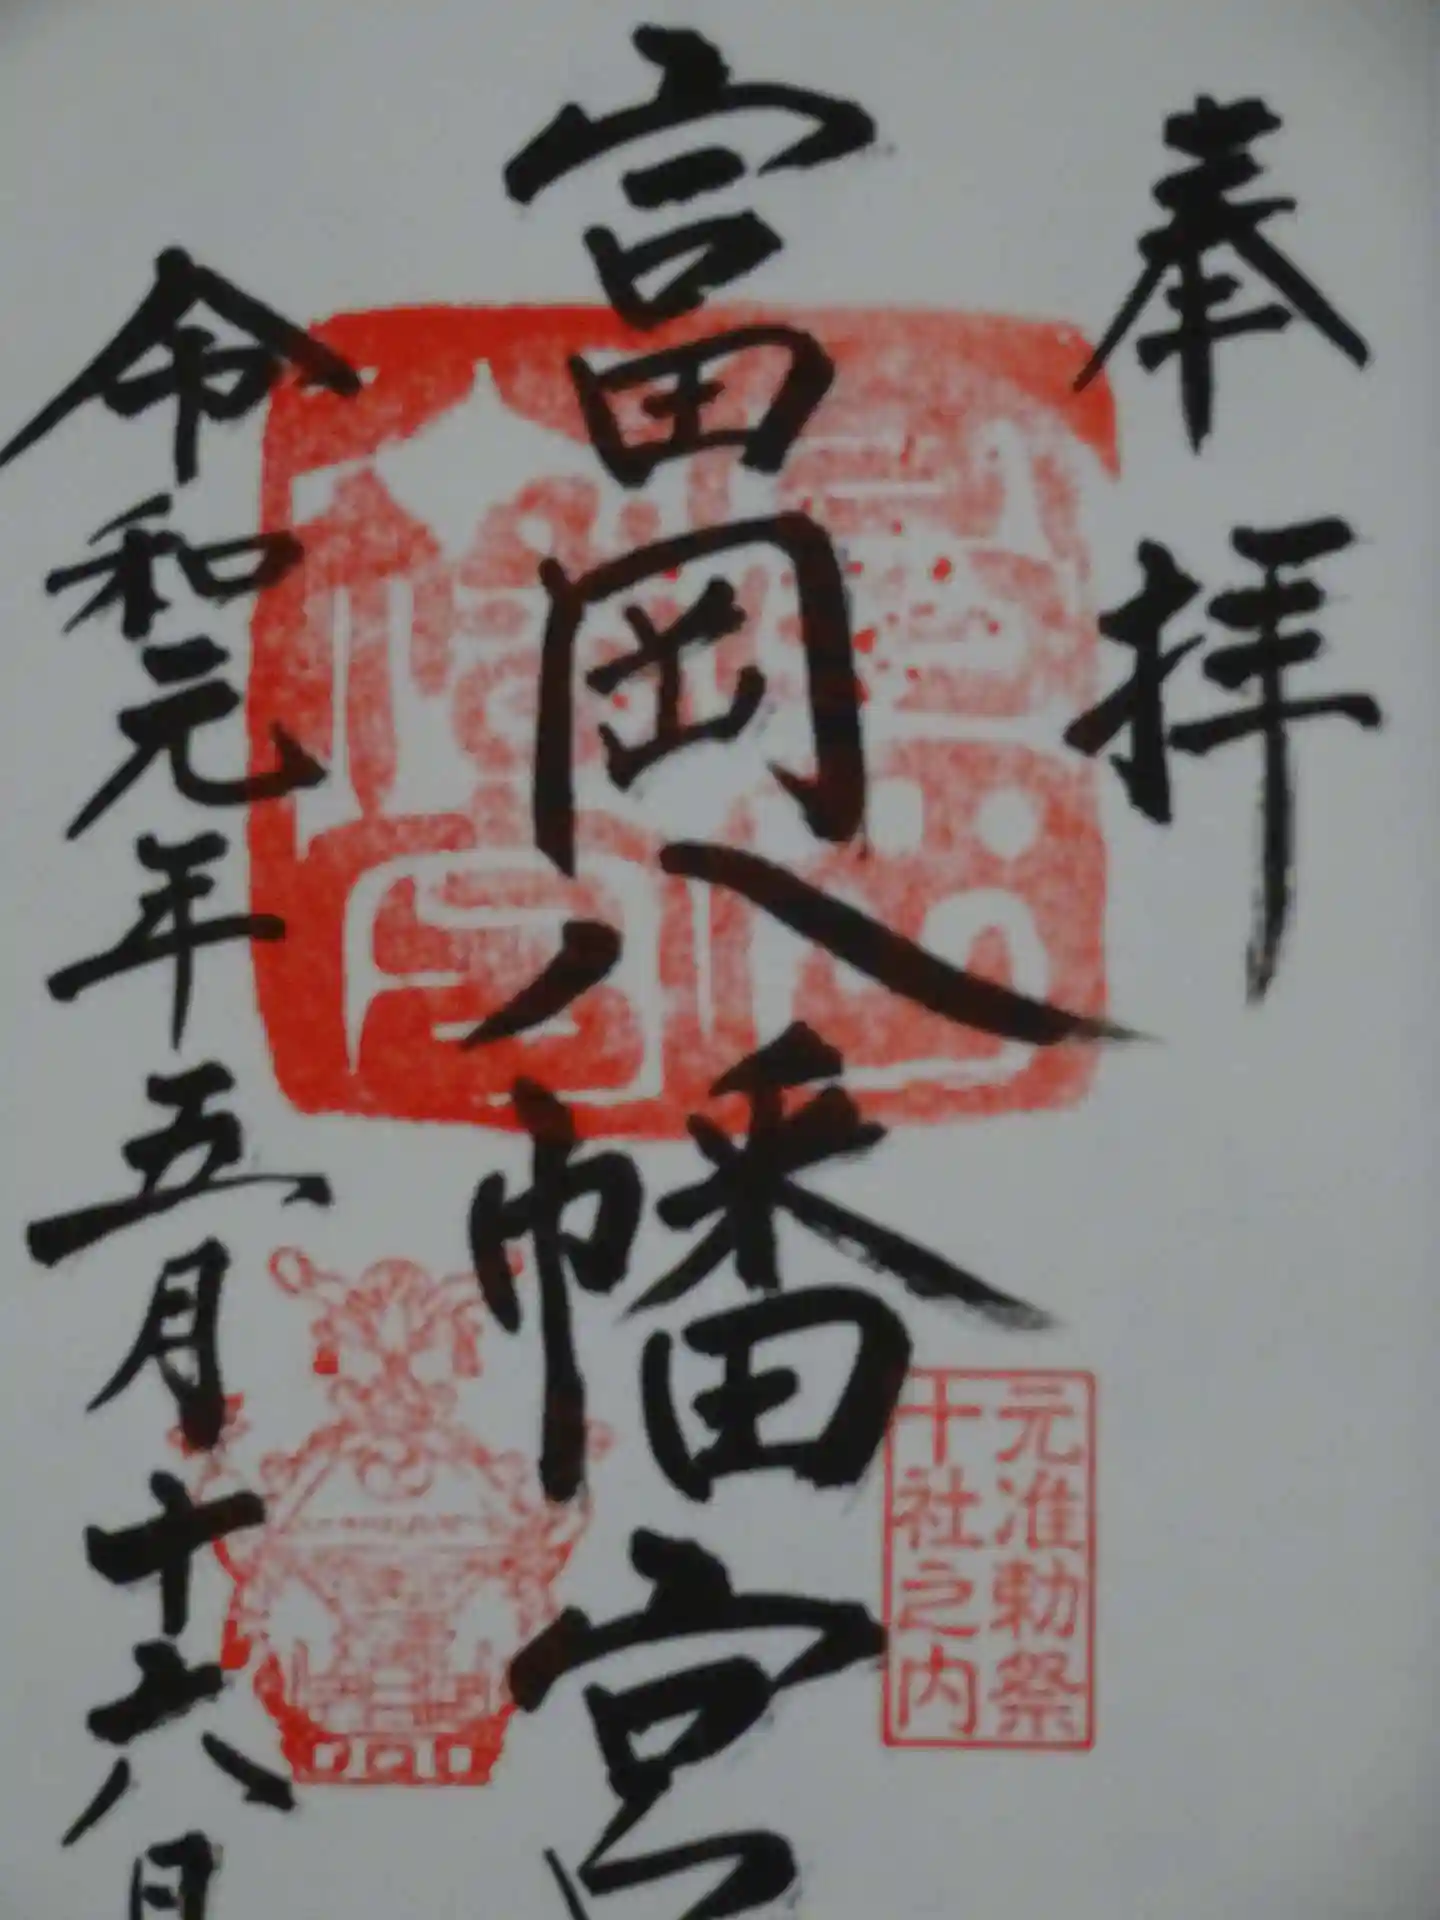 奉拝
富岡八幡宮
元准勅祭
十社之内
令和元年五月十六日